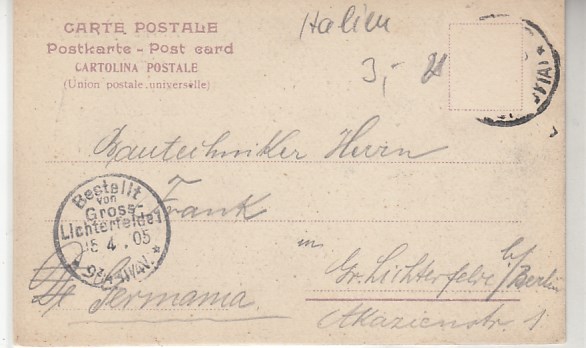 CARTE POSTALE
Postkarte - Post card
CARTOLINA POSTALE
(Union postale universelle)
Italien
3,-
Bautechniker Herrn
Frank
in
Gr. Lichterfelde b/Berlin
Akazienstr. 1
Germania.
Bestellt
von
Gross-
Lichterfelde 1
05